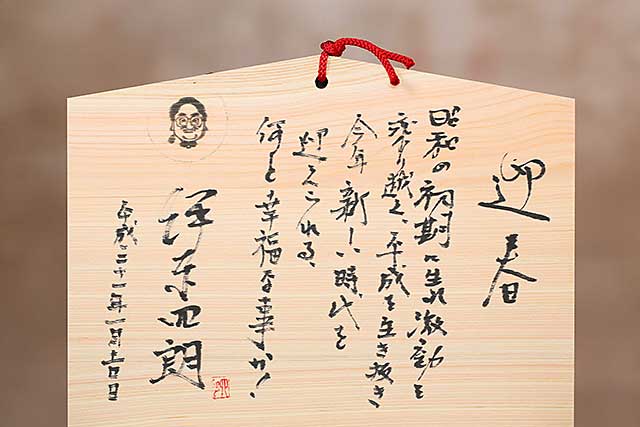 迎春
昭和の初期に生れ激動を
り越え、平成を生き抜き
今年新しい時代を
迎えられる、
何と幸福な事か!
伊東四朗
平成三十一年一月吉日